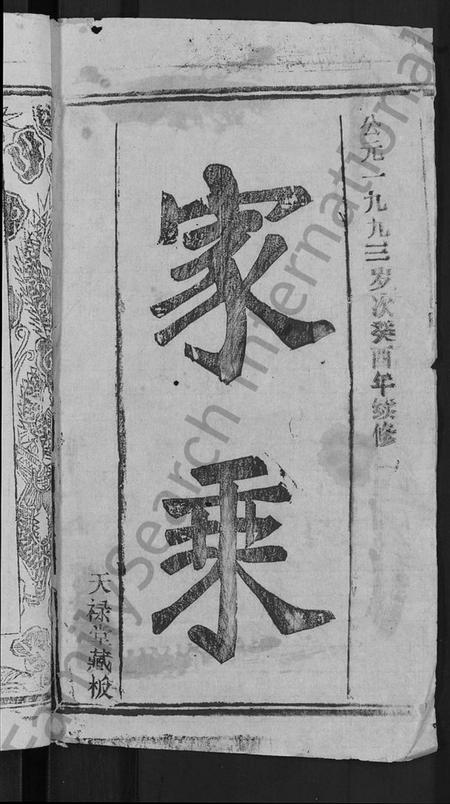 公元一九九三岁次癸酉年续修
家乘
天禄堂藏板
FamilySearch International